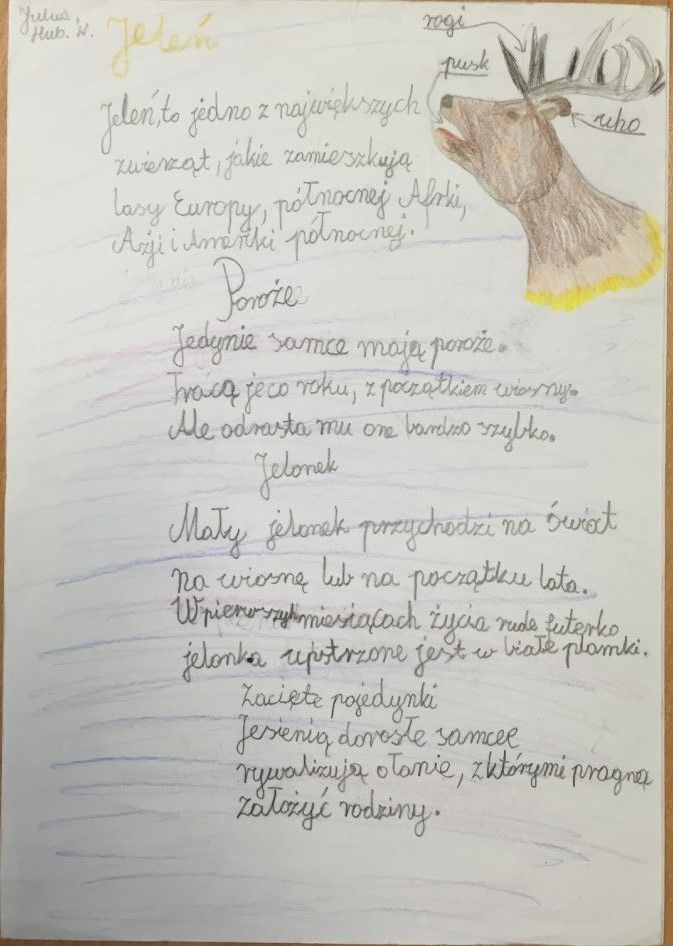 Julia
Hub. W.
Jeleń
rogi
pusk
uho
Jeleń, to jedno z największych
zwierząt, jakie zamieszkują
lasy Europy, północnej Afrki,
Azji i Amerki północnej.
Poroże
Jedynie samce mają poroże.
Tracą je co roku, z początkiem wiosny.
Ale odrasta mu one bardzo szybko.
Jelonek
Mały jelonek przychodzi na świat
na wiosnę lub na początku lata.
W pierwszych miesiącach życia rude futerko
jelonka upstrzone jest w białe plamki.
Zacięte pojedynki
Jesienią dorosłe samcee
rywalizują o łanie, z którymi pragną
założyć rodziny.